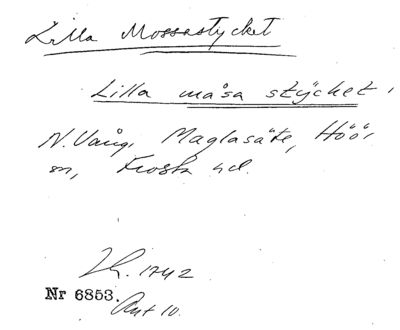 Lilla Mossastycket
Lilla måsa stÿcket,
N. Vång, Maglasäte, Höörs
sn, Frosta hd.
Lk. 1742
Nr 6853.
Akt 10.